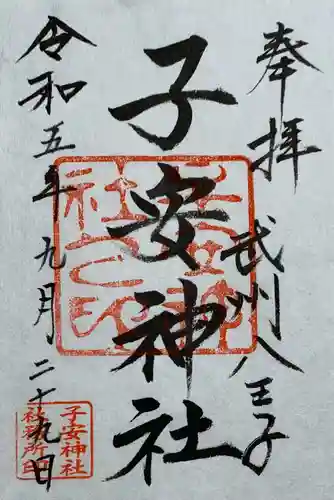 奉拝
武州八王子
子安神社
令和五年九月二十九日
子安神社
社務所印